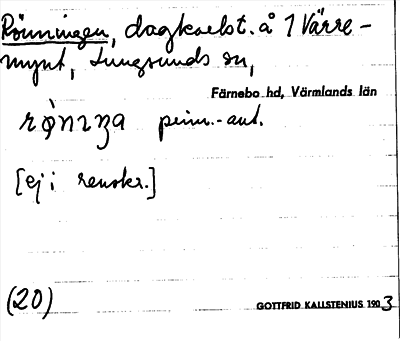 Rönningen, dagkarlst. å 1 Värre-
mynt, Lungsunds sn,
Färnebo hd, Värmlands län
rǿnıŋa prim.-ant.
[ej i renskr.]
(20)
GOTTFRID KALLSTENIUS 1903